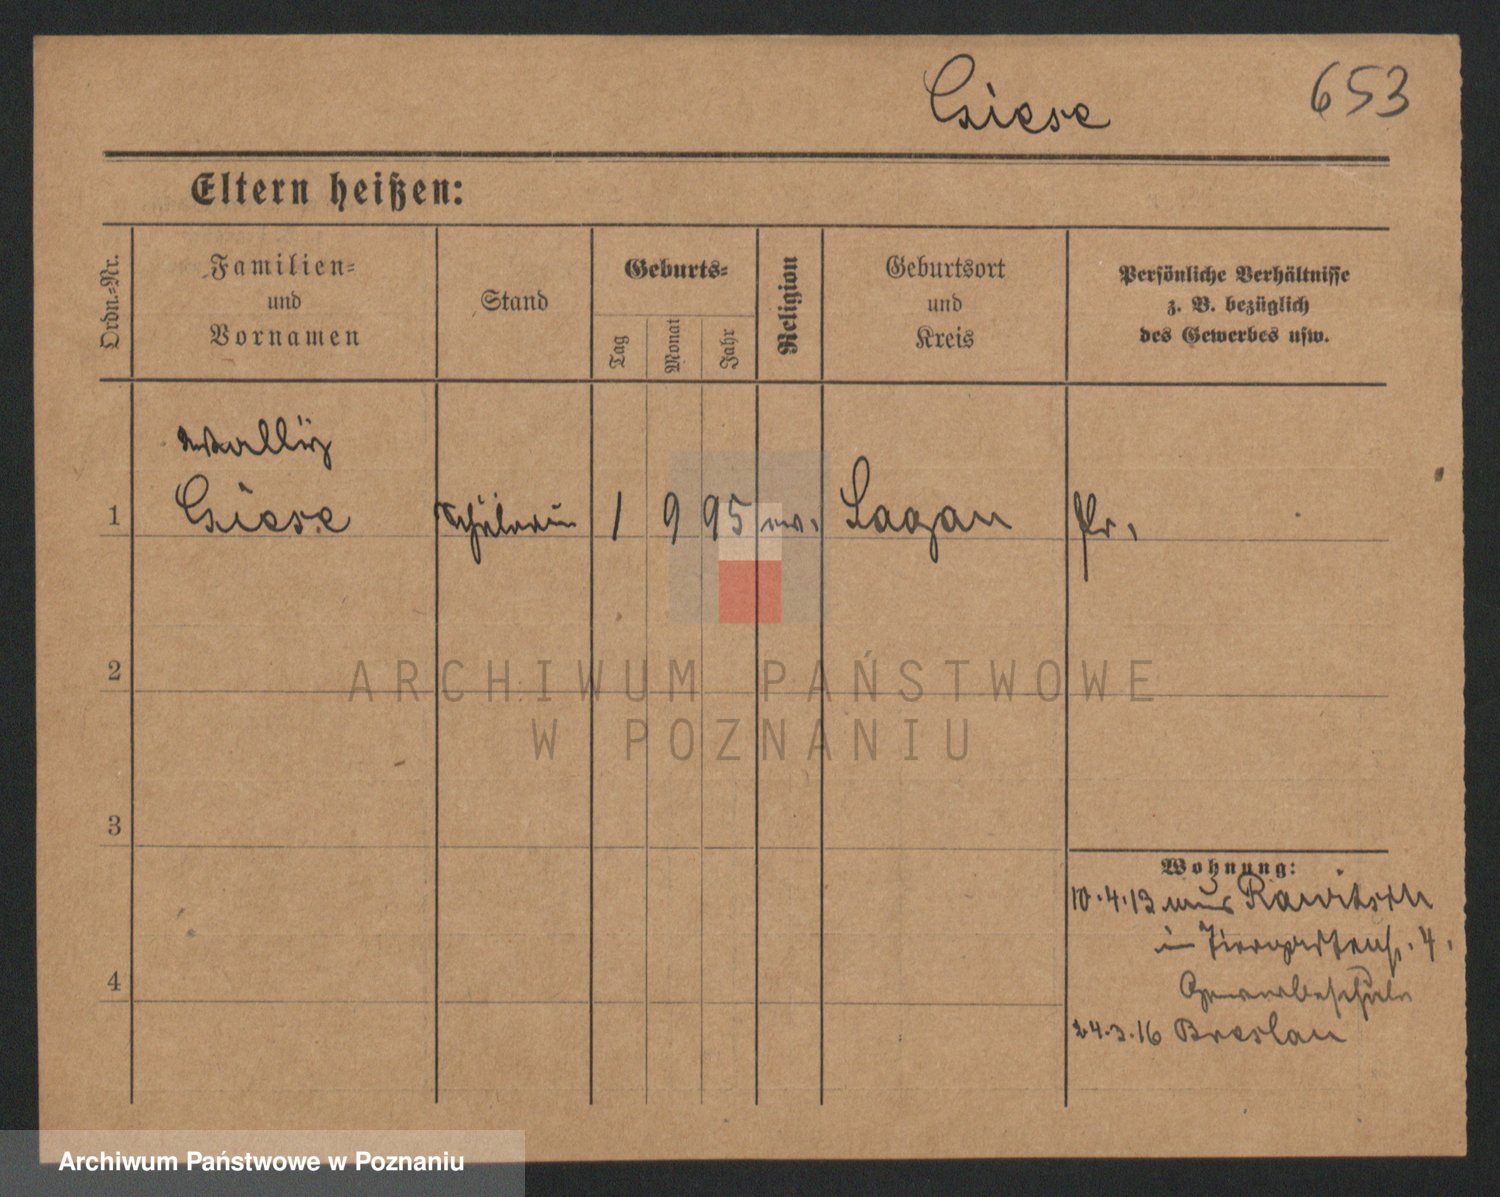 Giese 653
Eltern heißen:
Ordn.-Nr.
Familien-
und
Vornamen
Stand
Geburts-
Tag
Monat
Jahr
Religion
Geburtsort
und
Kreis
Persönliche Verhältnisse
z. B. bezüglich
des Gewerbes usw.
Wally
1 Giese Schülerin 1 9 95 ev. Sagan Pr.
2
3
4
Wohnung:
10.4.13 aus Rawitsch
in Tiergartenst. 4.
Gewerbeschule
24.3.16 Breslau
ARCHIWUM PAŃSTWOWE
W POZNANIU
Archiwum Państwowe w Poznaniu